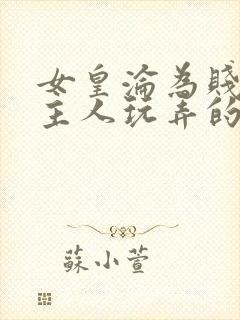 女皇淪為賤
主人玩弄的
蘇小萱